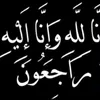 نَّا لِلّٰهِ وَإِنَّا إِلَيْهِ
رَاجِعُونَ